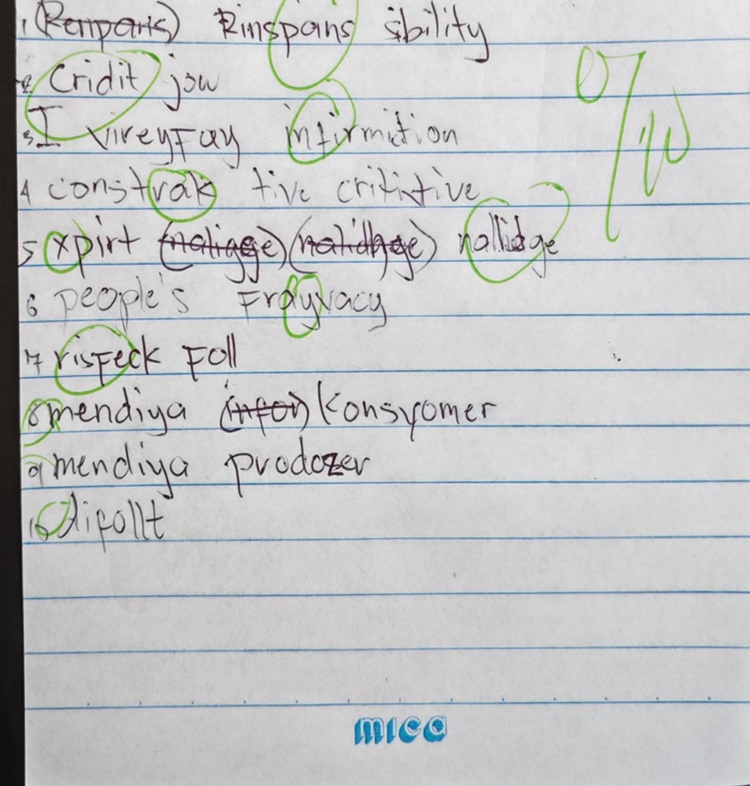 1 (Rempars) Rinspans ibility
2 Cridit jow
3 I vireyFay infirmition
4 constrak tive crititive
5 xpirt (naligge) (nalidhge) nallidge
6 people's Frayvacy
7 risFeck Foll
8 mendiya (infor) Konsyomer
9 mendiya prodozer
10 difollt
0/10
mica